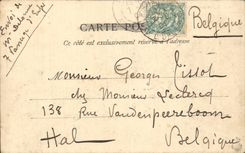 Belgique
CARTE POS
Ce côté est exclusivement réservé à l'adresse
Envoi de
Monsieur Georges Tissot
chez Monsieur Leclercq
138 Rue Vandenpeereboom
Hal
Belgique